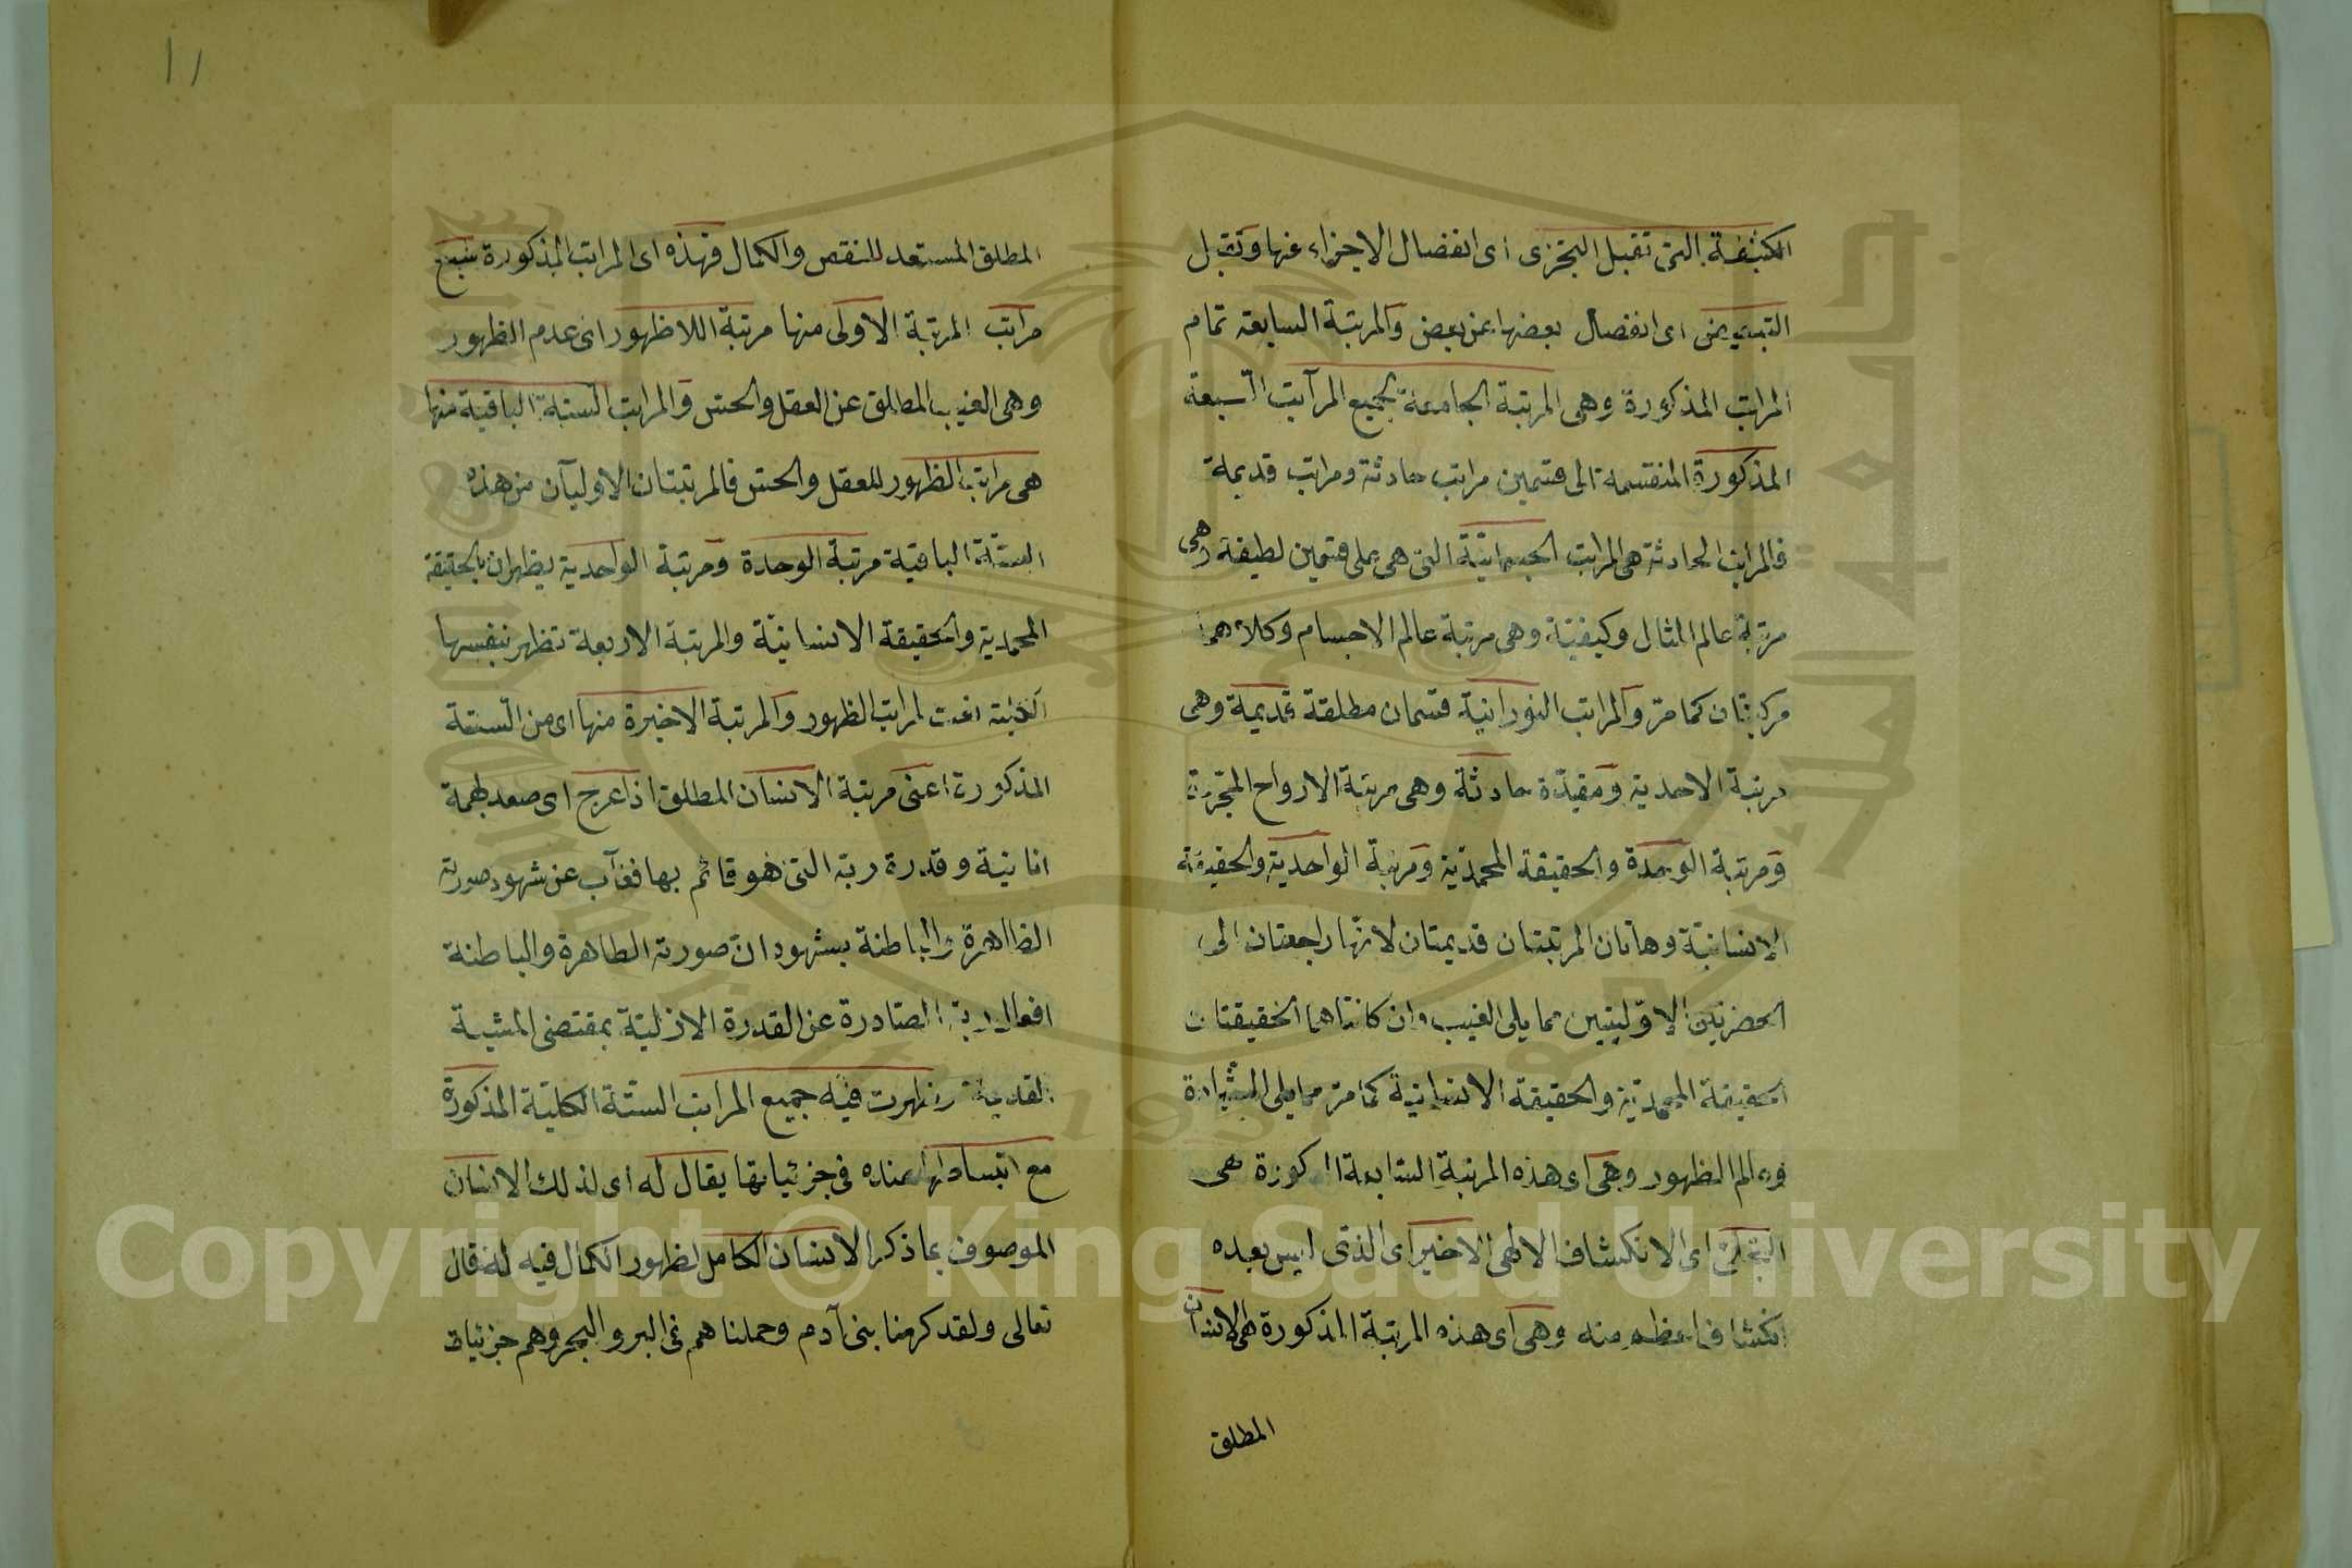 الكثيفة التي تقبل التجزى اى انفصال الاجزاء عنها وتقبل
التبعيض اى انفصال بعضها عن بعض والمرتبة السابعة تمام
المراتب المذكورة وهى المرتبة الجامعة لجميع المراتب السبعة
المذكورة المنقسمة الى قسمين مراتب حادثة ومراتب قديمة
فالمراتب الحادثة هى المراتب الجسمانية التى هى على قسمين لطيفة وهى
مرتبة عالم المثال وكيفيّة وهى مرتبة عالم الاجسام وكلاهما
مركبتان كما مرّ والمراتب النورانية قسمان مطلقة قديمة وهى
مرتبة الاحدية ومقيدة حادثة وهى مرتبة الارواح المجردة
ومرتبة الوحدة والحقيقة المحمدّية ومرتبة الواحدية والحقيقة
الانسانيّة وهاتان المرتبتان قديمتان لانها راجعتان الى
الحضرتين الاوّليتين مما يلى الغيب وان كانتا هما الحقيقتان
الحقيقة المحمدّية والحقيقة الانسانيّة كما مرّ مما يلى الشهادة
وعالم الظهور وهى اى هذه المرتبة السابعة المذكورة هى
التجلى اى الانكشاف الالهى الاخير اى الذى ليس بعده
انكشاف اعظم منه وهى اى هذه المرتبة المذكورة هى الانسان
المطلق
١١
المطلق المستعد للنقص والكمال فهذه اى المراتب المذكورة سبع
مراتب المرتبة الاولى منها مرتبة اللاظهور اى عدم الظهور
وهى الغيب المطلق عن العقل والحسّ والمراتب الستة الباقية منها
هى مراتب الظهور للعقل والحسّ فالمرتبتان الاوليان من هذه
الستّة الباقية مرتبة الوحدة ومرتبة الواحدية يظهران بالحقيقة
المحمدية والحقيقة الانسانيّة والمرتبة الاربعة تظهر بنفسها
لمراتب الظهور والمرتبة الاخيرة منها اى من الستة
المذكورة اعنى مرتبة الانسان المطلق اذا عرج اى صعد بهمة
انانية وقدرة ربّه التى هو قائم بها فغاب عن شهود صورته
الظاهرة والباطنة بشهود انّ صورته الظاهرة والباطنة
افعال ربّه الصادرة عن القدرة الازليّة بمقتضى المشيئة
القديمة وظهرت فيه جميع المراتب الستّة الكليّة المذكورة
مع انبساطها عنده فى جزئياتها يقال له اى لذلك الانسان
الموصوف بما ذكر الانسان الكامل لظهور الكمال فيه له قال
تعالى ولقد كرمنا بنى آدم وحملناهم فى البر والبحر وهم جزئيات
Copyright © King Saud University